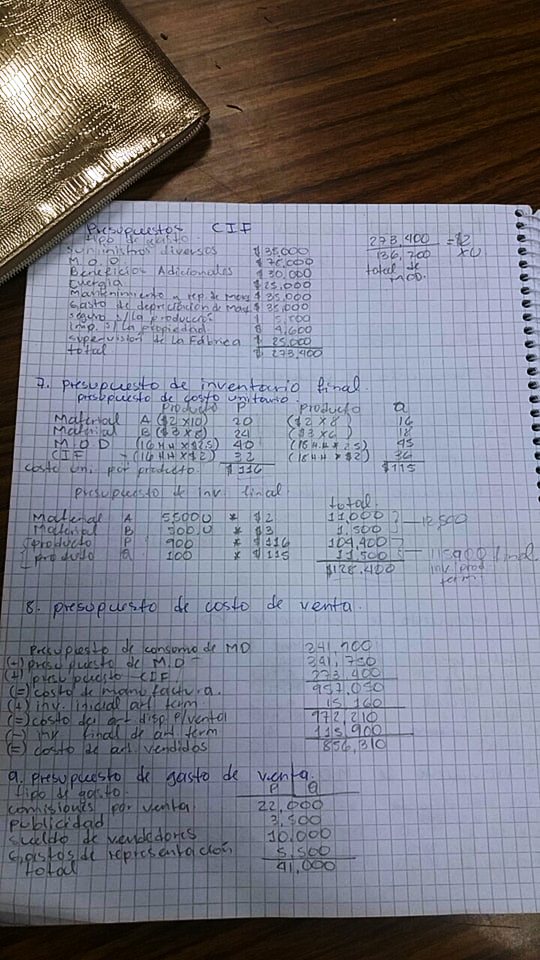 Presupuestos CIF
tipo de gasto
suministros diversos $35,000
M.O.D $ 76,000
Beneficios Adicionales $ 30,000
Energia $ 25,000
Mantenimiento y rep. de $ 35,000
Gasto de depreciación de $ 35,000
seguro s/ la producción $
imp. s/ la propiedad $ 4,600
supervisión de la Fábrica $ 25,000
total $ 273,400
273,400 = $2
136,700
total de
MOD.
7. presupuesto de inventario final.
presupuesto de costo unitario.
Producto P producto Q
Material A ($2 X10) 20 ($2 X 8) 16
Material B ($3 X 8) 24 ($3 X6) 18
M O D (16 HH X $2.5) 40 (18 HH X $2.5) 45
CIF (16 HH X $2) 32 (18 HH X $2) 36
costo uni. por producto. $116 $115
presupuesto de inv. final.
total.
Material A 5500 U * $2 11,000
Material B 500 U * $3 1,500
12,500
producto P 900 * $116 104,400
producto Q 100 * $115 11,500
115,900 final
inv. prod
term.
$128,400
8. presupuesto de costo de venta.
Presupuesto de consumo de MD 241,900
(+) presupuesto de M.O 341,750
(+) presupuesto CIF. 273,400
(=) costo de manufactura. 957,050
(+) inv. inicial art. term 15,160
(=) costo de art. disp. p/venta 972,210
(-) inv. final de art. term 115,900
(=) costo de art. vendidos 856,310
9. presupuesto de gasto de venta.
tipo de gasto. P Q
comisiones por venta. 22,000
publicidad 3,500
sueldo de vendedores 10,000
gastos de representación 5,500
total 41,000